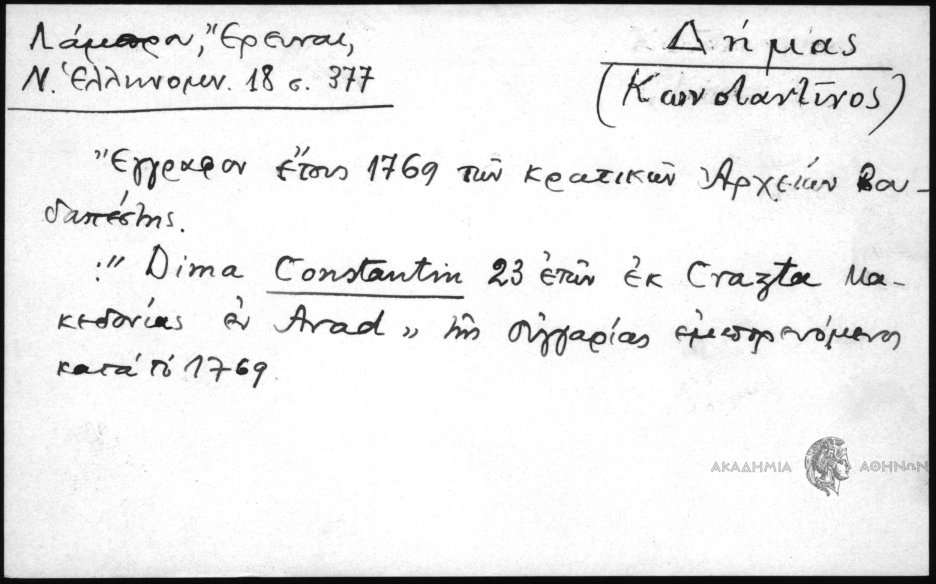 Λάμπρου, Ἔρευναι,
Ν. Ἑλληνομν. 18 σ. 377
Δήμας
(Κωνσταντῖνος)
Ἔγγραφον ἔτους 1769 τῶν κρατικῶν Ἀρχείων Βου-
δαπέστης.
:" Dima Constantin 23 ἐτῶν ἐκ Crazta Μα-
κεδονίας ἐν Arad " τῆς Οὐγγαρίας ἐμπορευόμενος
κατά τό 1769
ΑΚΑΔΗΜΙΑ ΑΘΗΝΩΝ